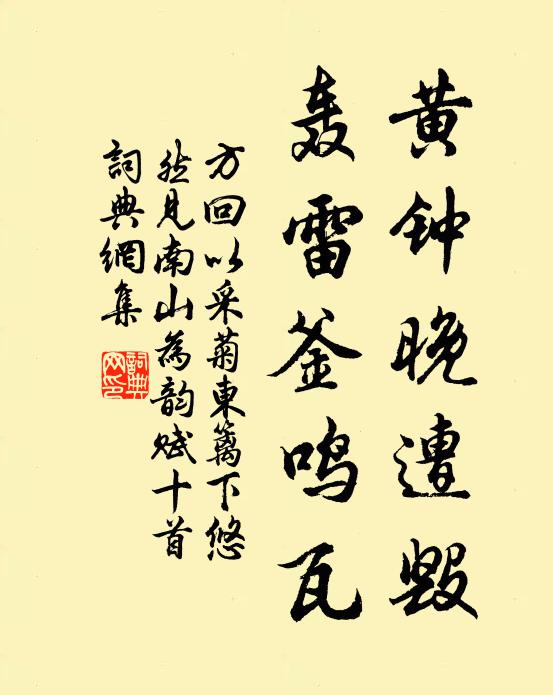 黄钟晚遭毁
轰雷釜鸣瓦
方回以采菊東籬下悠
然見南山為韵赋十首
詞典網集
詞典
网印